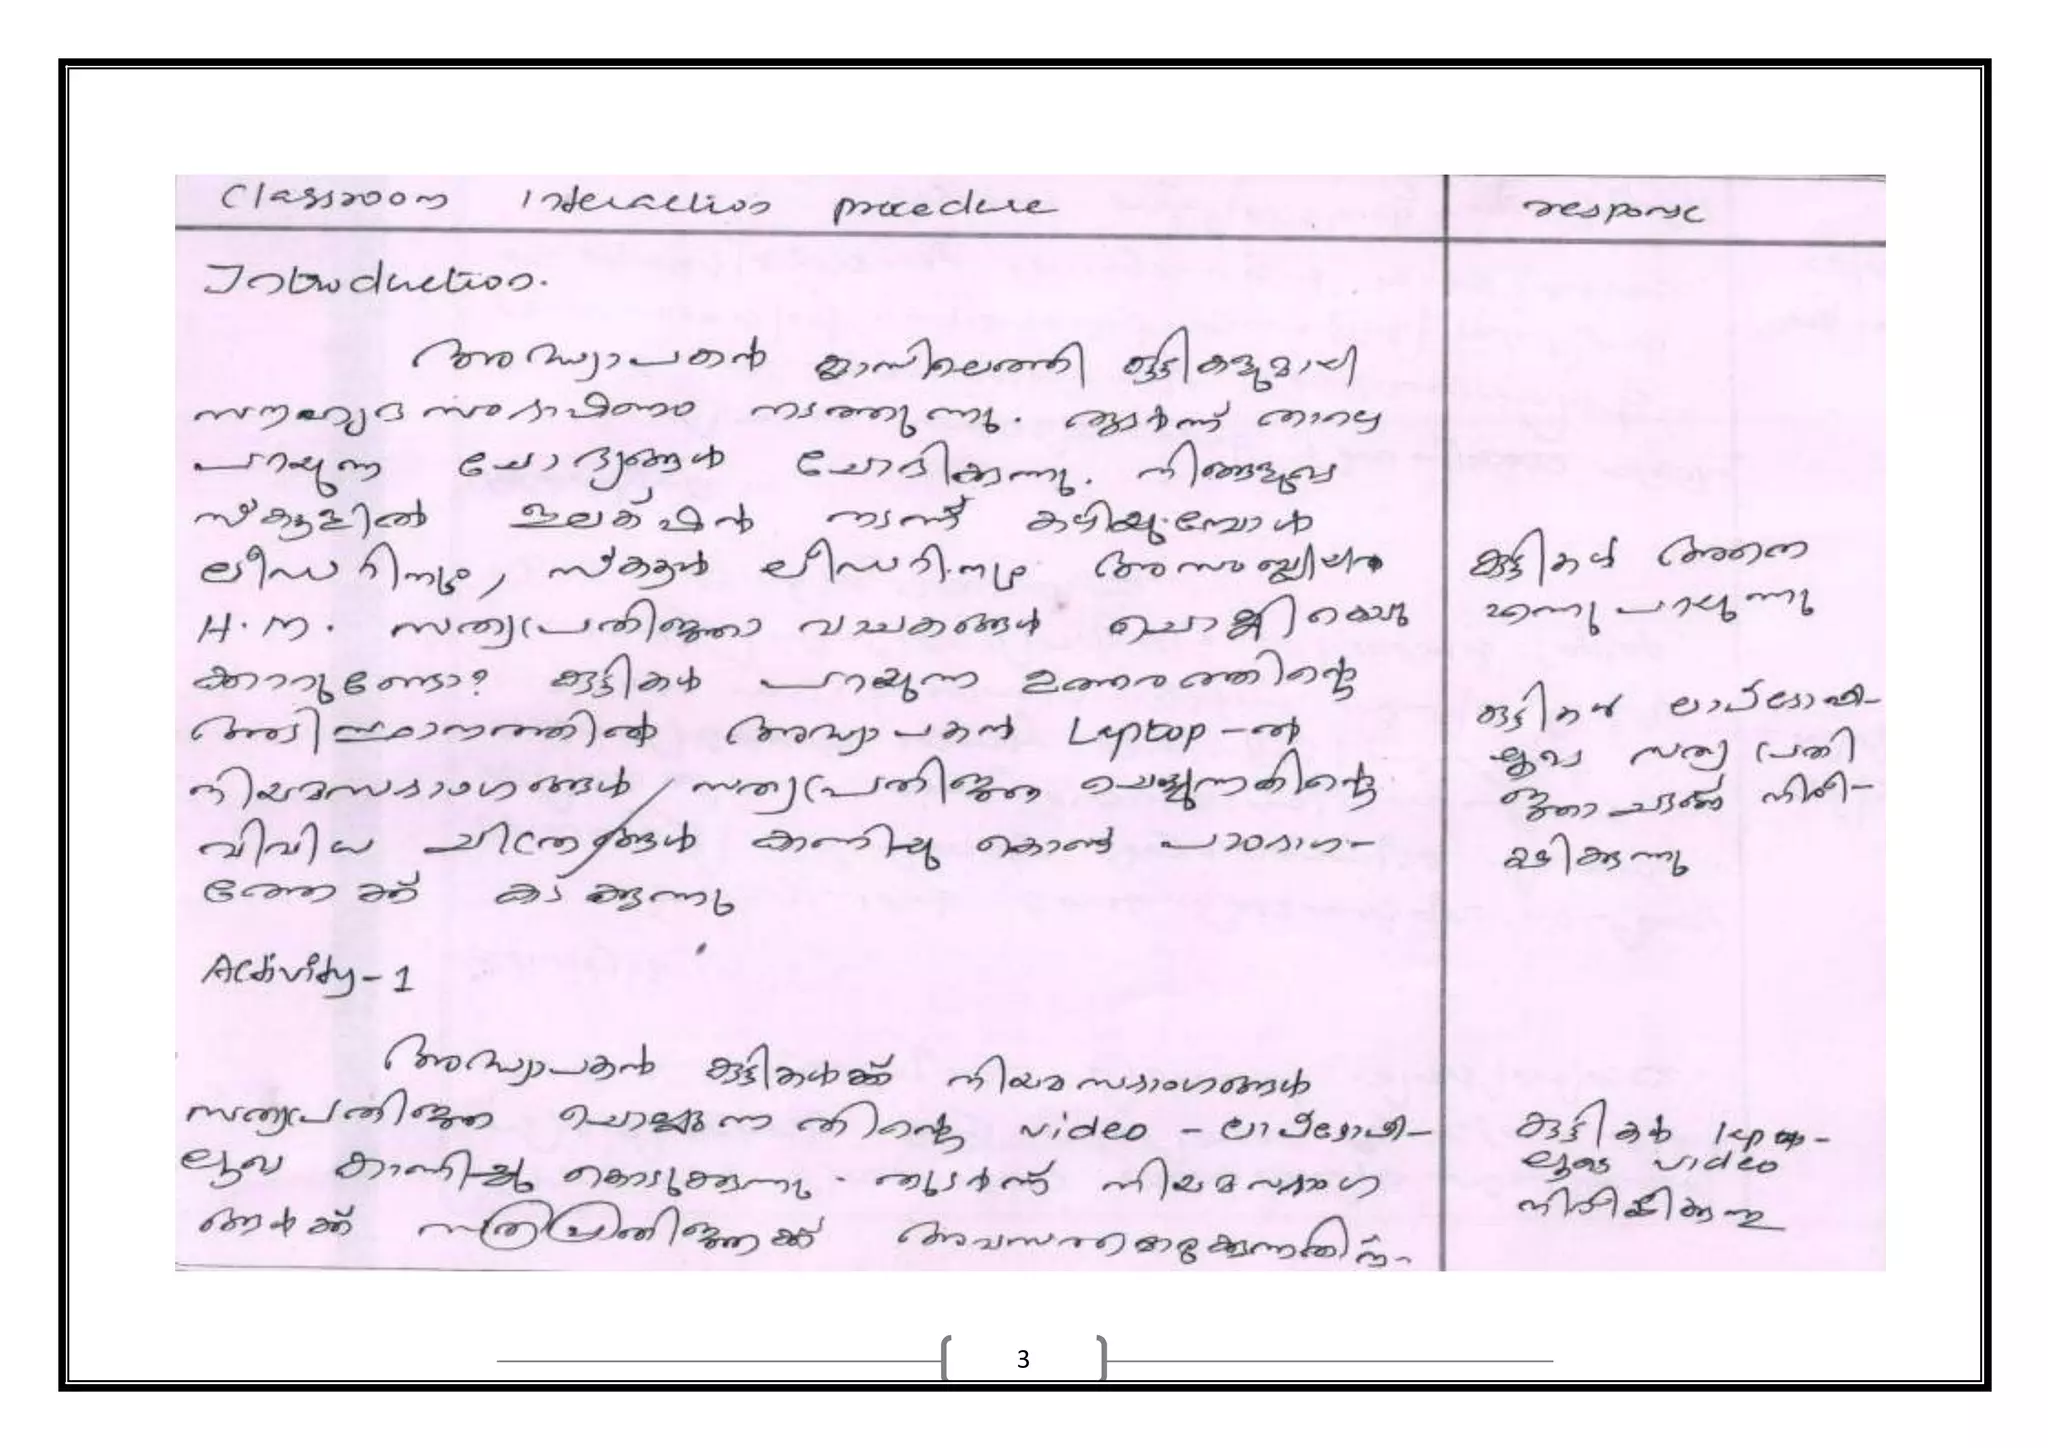 Classroom Interaction procedure
response
Introduction.
അദ്ധ്യാപകൻ ക്ലാസിലെത്തി കുട്ടികളുമായി
സൗഹൃദ സംഭാഷണം നടത്തുന്നു. തുടർന്ന് താഴെ
പറയുന്ന ചോദ്യങ്ങൾ ചോദിക്കുന്നു. നിങ്ങളുടെ
സ്കൂളിൽ ഇലക്ഷൻ നടന്ന് കഴിയുമ്പോൾ
ലീഡറിനും, സ്കൂൾ ലീഡറിനും അസംബ്ലിയിൽ
H.M. സത്യപ്രതിജ്ഞാ വാചകങ്ങൾ ചൊല്ലി
ക്കാറുണ്ടോ? കുട്ടികൾ പറയുന്ന ഉത്തരത്തിന്റെ
അടിസ്ഥാനത്തിൽ അദ്ധ്യാപകൻ Laptop-ൽ
നിയമസഭാംഗങ്ങൾ സത്യപ്രതിജ്ഞ ചെയ്യുന്നതിന്റെ
വിവിധ ചിത്രങ്ങൾ കാണിച്ചു കൊണ്ട് പാഠഭാഗ-
ത്തേക്ക് കടക്കുന്നു
കുട്ടികൾ അതെ
എന്നു പറയുന്നു
കുട്ടികൾ ലാപ്ടോപ്പി-
ലൂടെ സത്യപ്രതി
ജ്ഞാ ചടങ്ങ് നിരീ-
ക്ഷിക്കുന്നു
Activity-1
അദ്ധ്യാപകൻ കുട്ടികൾക്ക് നിയമസഭാംഗങ്ങൾ
സത്യപ്രതിജ്ഞ ചൊല്ലുന്നതിന്റെ video - ലാപ്ടോപ്പി-
ലൂടെ കാണിച്ചു കൊടുക്കുന്നു. തുടർന്ന് നിയമസഭാംഗ
ങ്ങൾക്ക് സത്യപ്രതിജ്ഞക്ക് അവസരമൊരുക്കുന്നതിന്-
കുട്ടികൾ laptop-
ലൂടെ video
നിരീക്ഷിക്കുന്നു
3